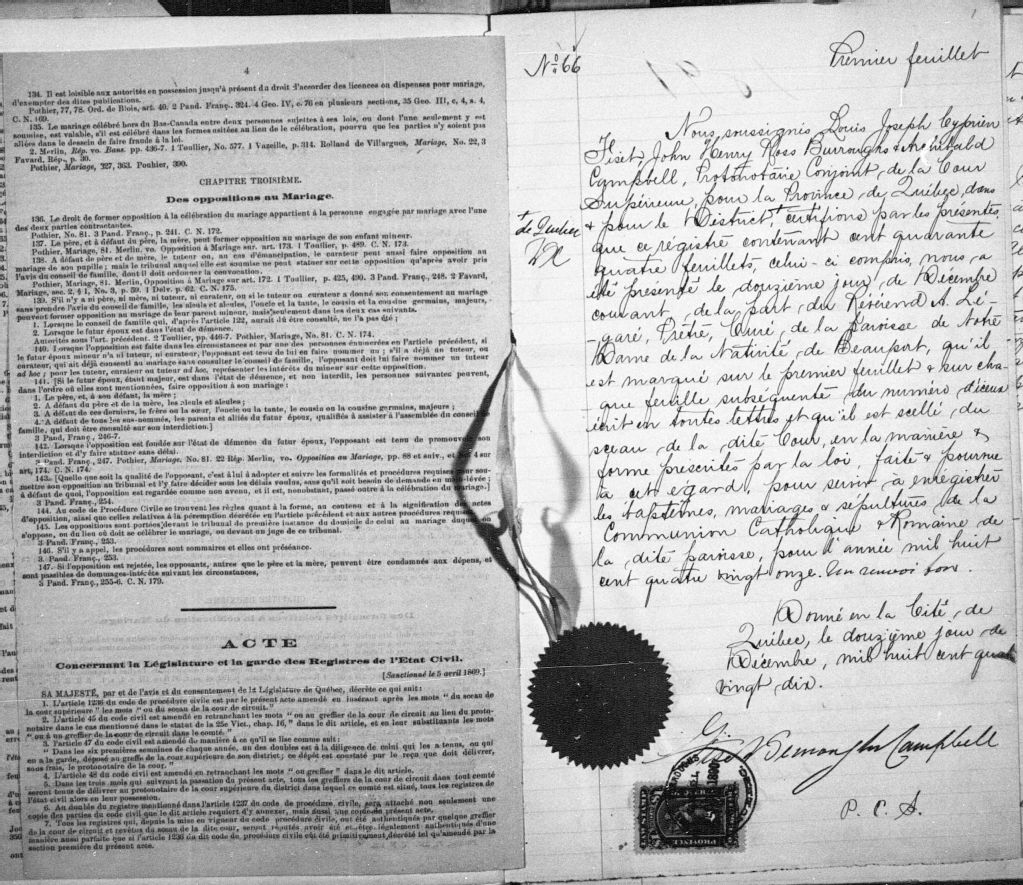 4
134. Il est loisible aux autorités en possession jusqu'à présent du droit d'accorder des licences ou dispenses pour mariage,
d'exempter des dites publications.
Pothier, 77, 78. Ord. de Blois, art. 40. 2 Pand. Franç. 324. 4 Geo. IV, c. 76 en plusieurs sections, 35 Geo. III, c, 4, s. 4,
C. N. 169.
135. Le mariage célébré hors du Bas-Canada entre deux personnes sujettes à ses lois, ou dont l'une seulement y est
soumise, est valable, s'il est célébré dans les formes usitées au lieu de la célébration, pourvu que les parties n'y soient pas
allées dans le dessein de faire fraude à la loi.
2. Merlin, Rép. vo. Bans. pp. 436-7. 1 Toullier, No. 577. 1 Vazeille, p. 314. Rolland de Villargues, Mariage, No. 22, 3
Favard, Rép., p. 30.
Pothier, Mariage, 327, 363. Pouhier, 390.
CHAPITRE TROISIÈME.
Des oppositions au Mariage.
136. Le droit de former opposition à la célébration du mariage appartient à la personne engagée par mariage avec l'une
des deux parties contractantes.
Pothier, No. 81. 3 Pand. Franç., p. 241. C. N. 172.
137. Le père, et à défaut du père, la mère, peut former opposition au mariage de son enfant mineur.
Pothier, Mariage, 81. Merlin, vo. Opposition à Mariage sur. art. 173. 1 Toullier, p. 489. C. N. 173.
138. A défaut de père et de mère, le tuteur ou, en cas d'émancipation, le curateur peut aussi faire opposition au
mariage de son pupille ; mais le tribunal auquel elle est soumise ne peut statuer sur cette opposition qu'après avoir pris
l'avis du conseil de famille, dont il doit ordonner la convocation.
Pothier, Mariage, 81. Merlin, Opposition à Mariage sur art. 172. 1 Toullier, p. 425, 490. 3 Pand. Franç., 248. 2 Favard,
Mariage, sec. 2. § 1, No. 3, p. 59. 1 Delv. p. 62. C. N. 175.
139. S'il n'y a ni père, ni mère, ni tuteur, ni curateur, ou si le tuteur ou curateur a donné son consentement au mariage
sans prendre l'avis du conseil de famille, les aïeuls et aïeules, l'oncle et la tante, le cousin et la cousine germains, majeurs,
peuvent former opposition au mariage de leur parent mineur, mais seulement dans les deux cas suivants.
1. Lorsque le conseil de famille qui, d'après l'article 122, aurait dû être consulté, ne l'a pas été ;
2. Lorsque le futur époux est dans l'état de démence.
Autorités sous l'art. précédent. 2 Toullier, pp. 446-7. Pothier, Mariage, No. 81. C. N. 174.
140. Lorsque l'opposition est faite dans les circonstances et par une des personnes énumérées en l'article précédent, si
le futur époux mineur n'a ni tuteur, ni curateur, l'opposant est tenu de lui en faire nommer un ; s'il a déjà un tuteur, ou
curateur, qui ait déjà consenti au mariage sans consulter le conseil de famille, l'opposant doit lui faire nommer un tuteur
ad hoc ; pour les tuteur, curateur ou tuteur ad hoc, représenter les intérêts du mineur sur cette opposition.
141. [Si le futur époux, étant majeur, est dans l'état de démence, et non interdit, les personnes suivantes peuvent,
dans l'ordre où elles sont mentionnées, faire opposition à son mariage :
1. Le père, et, à son défaut, la mère ;
2. A défaut du père et de la mère, les aïeuls et aïeules ;
3. A défaut de ces derniers, le frère ou la sœur, l'oncle ou la tante, le cousin ou la cousine germains, majeurs ;
4. A défaut de tous les sus-nommés, les parents et alliés du futur époux, qualifiés à assister à l'assemblée du conseil de
famille, qui doit être consulté sur son interdiction.]
3 Pand. Franç., 246-7.
142. Lorsque l'opposition est fondée sur l'état de démence du futur époux, l'opposant est tenu de promouvoir son
interdiction et d'y faire statuer sans délai.
3 Pand. Franç., 247. Pothier, Mariage. No. 81. 22 Rép. Merlin, vo. Opposition au Mariage, pp. 88 et suiv., et No. 4 sur
art. 174. C. N. 174.
143. [Quelque soit la qualité de l'opposant, c'est à lui à adopter et suivre les formalités et procédures requises pour sou-
mettre son opposition au tribunal et l'y faire décider sous les délais voulus, sans qu'il soit besoin de demande en main-levée ;
à défaut de quoi, l'opposition est regardée comme non avenu, et il est, nonobstant, passé outre à la célébration du mariage.]
3 Pand. Franç., 254.
144. Au code de Procédure Civile se trouvent les règles quant à la forme, au contenu et à la signification des actes
d'opposition, ainsi que celles relatives à la péremption décrétée en l'article précédent et aux autres procédures requises.
145. Les oppositions sont portées devant le tribunal de première instance du domicile de celui au mariage duquel on
s'oppose, ou du lieu où doit se célébrer le mariage, ou devant un juge de ce tribunal.
3 Pand. Franç., 253.
146. S'il y a appel, les procédures sont sommaires et elles ont préséance.
3. Pand. Franç., 253.
147. Si l'opposition est rejetée, les opposants, autres que le père et la mère, peuvent être condamnés aux dépens, et
sont passibles de dommages-intérêts suivant les circonstances,
3 Pand Franç., 255-6. C. N. 179.
ACTE
Concernant la Législature et la garde des Registres de l'Etat Civil.
[Sanctionné le 5 avril 1869.]
SA MAJESTÉ, par et de l'avis et du consentement de la Législature de Québec, décrète ce qui suit :
1. L'article 1236 du code de procédure civile est par le présent acte amendé en insérant après les mots " du sceau de
la cour supérieure " les mots " ou du sceau de la cour de circuit."
2. L'article 45 du code civil est amendé en retranchant les mots " ou au greffier de la cour de circuit au lieu du proto-
notaire dans le cas mentionné dans le statut de la 25e Vict., chap. 16, " dans le dit article, et en leur substituant les mots
" ou à un greffier de la cour de circuit dans le comté."
3. l'article 47 du code civil est amendé de manière à ce qu'il se lise comme suit :
" Dans les six premières semaines de chaque année, un des doubles est à la diligence de celui qui les a tenus, ou qui
en a la garde, déposé au greffe de la cour supérieure de son district ; ce dépôt est constaté par le reçu que doit délivrer,
sans frais, le protonotaire de la cour. "
4. L'article 48 du code civil est amendé en retranchant les mots " ou greffier " dans le dit article.
5. Dans les trois mois qui suivront la passation du présent acte, tous les greffiers de la cour de circuit dans tout comté
seront tenus de délivrer au protonotaire de la cour supérieure du district dans lequel ce comté est situé, tous les registres de
l'état civil alors en leur possession.
6. Au double du registre mentionné dans l'article 1237 du code de procédure, civile, sera attaché non seulement une
copie des parties du code civil que le dit article requiert d'y annexer, mais aussi une copie du présent acte.
7. Tous les registres qui, depuis la mise en vigueur du code procédure civile, ont été authentiqués par quelque greffier
de la cour de circuit et revêtus du sceau de la dite cour, seront réputés avoir été et être légalement authentiqués d'une
manière aussi parfaite que si l'article 1236 du dit code de procédure civile eût été primitivement décrété tel qu'amendé par la
section première du présent acte.
No 66
Premier feuillet
Nous, soussignés Louis Joseph Cyprien
Fiset, John Henry Ross Burroughs & Archibald
Campbell, Protonotaire Conjoint, de la Cour
Supérieure, pour la Province de Québec, dans
+ de Québec
& pour le District, + certifions par les présentes,
que ce régistre contenant cent quarante
quatre feuillets, celui-ci compris, nous a
été présenté le douzième jour de Décembre
courant, de la part du Révérend A. Lé-
-garé, Prêtre, Curé, de la Paroisse de Notre
Dame de la Nativité, de Beauport, qu'il
est marqué sur le premier feuillet & sur cha-
que feuille subséquente du numéro d'iceux
écrit en toutes lettres et qu'il est scellé du
sceau de la dite Cour, en la manière &
forme prescrites par la loi, faite & pourvue
à cet égard, pour servir à enrégistrer
les baptêmes, mariages & sépultures de la
Communion Catholique & Romaine de
la dite paroisse, pour l'année mil huit
cent quatre vingt onze. Un renvoi bon.
Donné en la Cité de
Québec, le douzième jour de
Décembre, mil huit cent quatre
vingt dix.
Campbell
P. C. S.
PROVINCE